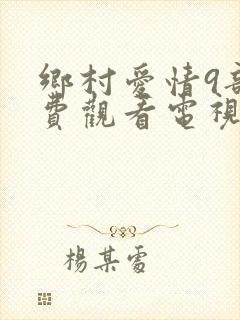 鄉村愛情9部
費觀看電視
楊某雷